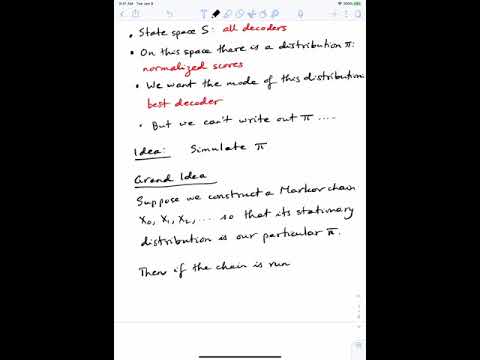 9:41 AM Tue Jan 8
• State space S: all decoders
• On this space there is a distribution π:
normalized scores
• We want the mode of this distribution:
best decoder
• But we can't write out π ....
Idea: Simulate π
Grand Idea
Suppose we construct a Markov chain
X₀, X₁, X₂, ... so that its stationary
distribution is our particular π.
Then if the chain is run